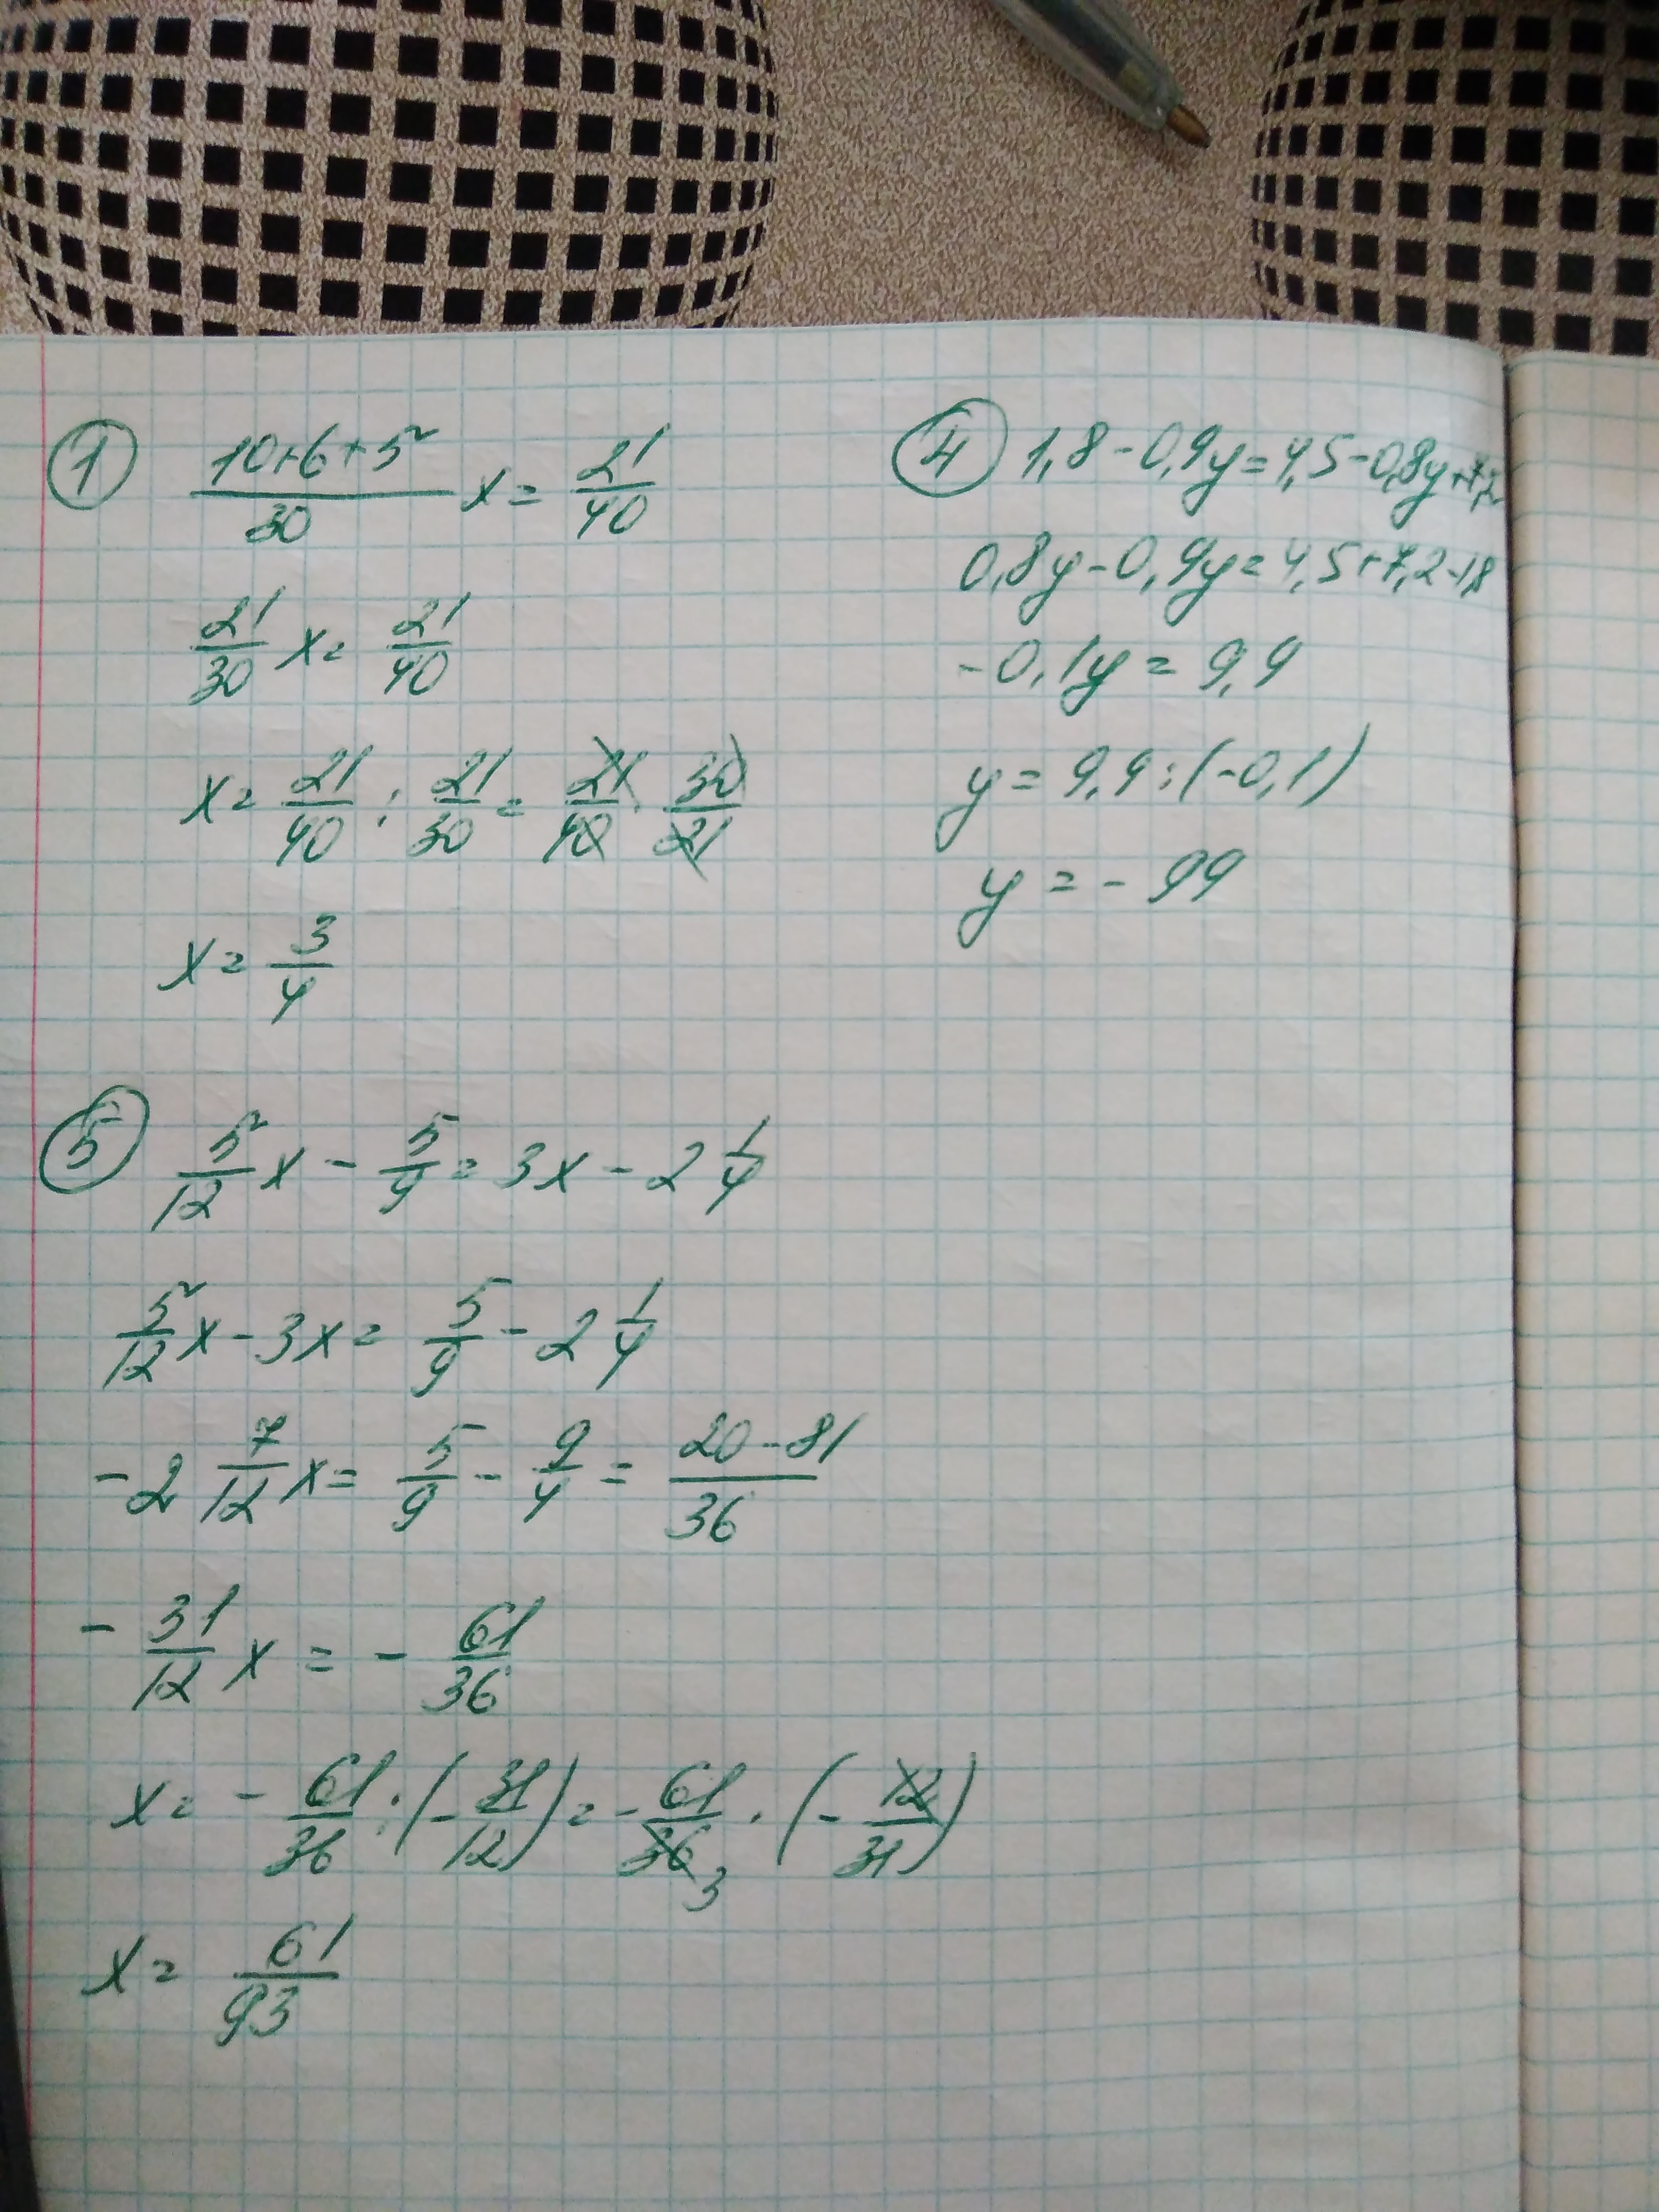 ① (10+6+5)/30 x = 21/40
21/30 x = 21/40
x = 21/40 : 21/30 = 21/40 · 30/21
x = 3/4
④ 1,8-0,9y=4,5-0,8y+7,2
0,8y-0,9y=4,5+7,2-1,8
-0,1y = 9,9
y = 9,9:(-0,1)
y = -99
⑤ 5/12 x - 5/9 = 3x - 2 1/4
5/12 x - 3x = 5/9 - 2 1/4
-2 7/12 x = 5/9 - 9/4 = (20-81)/36
- 31/12 x = - 61/36
x = - 61/36 : (- 31/12) = - 61/36 3 · (- 12/31)
x = 61/93